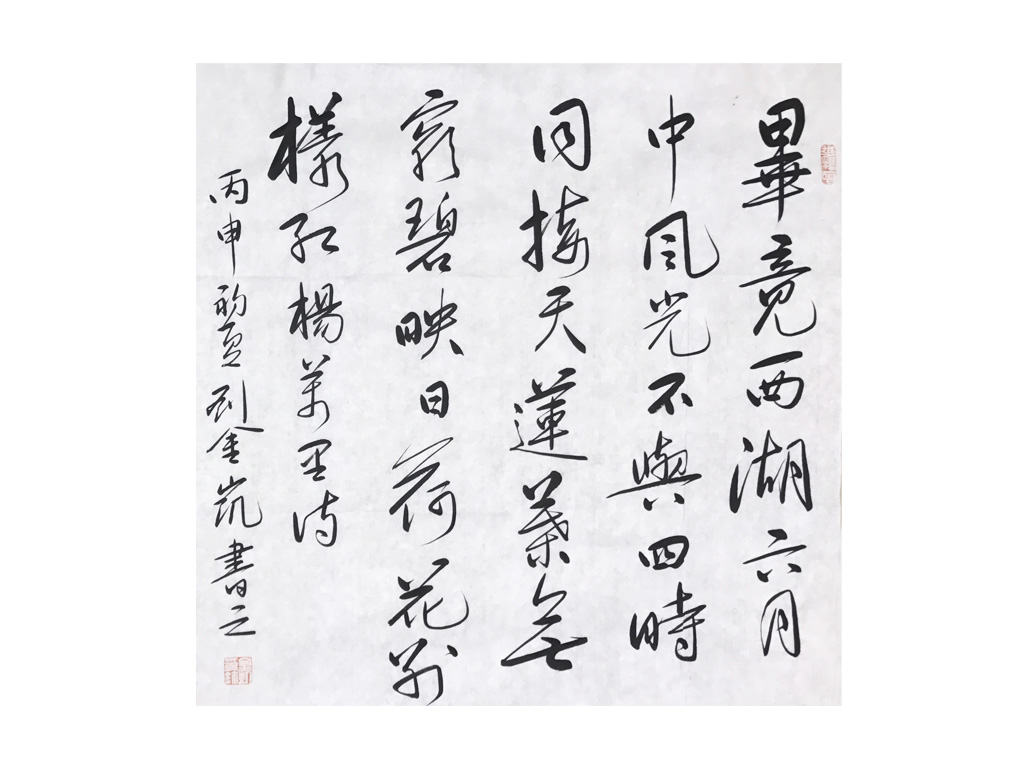 畢竟西湖六月
中風光不與四時
同接天蓮葉無
窮碧映日荷花別
樣紅楊萬里詩
丙申初夏劉金凱書之